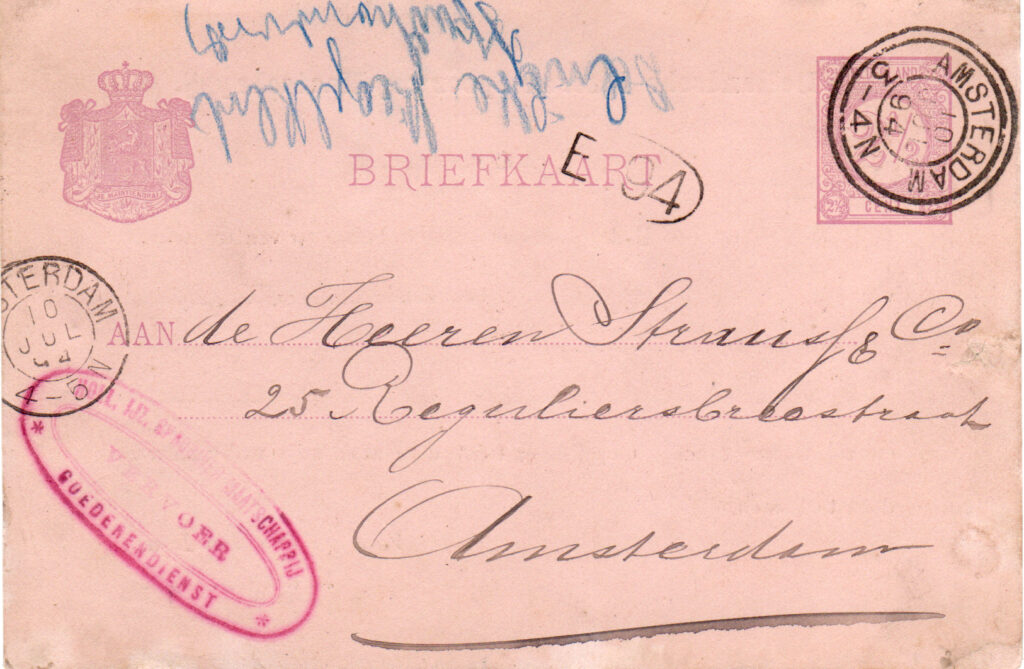 JE MAINTIENDRAI
BRIEFKAART
E 94
AMSTERDAM
10 JUL 94
3 - 4 N
CENT
2½
AMSTERDAM
10 JUL 94
4 - 5 N
AAN de Heeren Strauss & Co
25 Reguliersbreestraat
Amsterdam
MAATSCHAPPIJ
VERVOER
GOEDERENDIENST